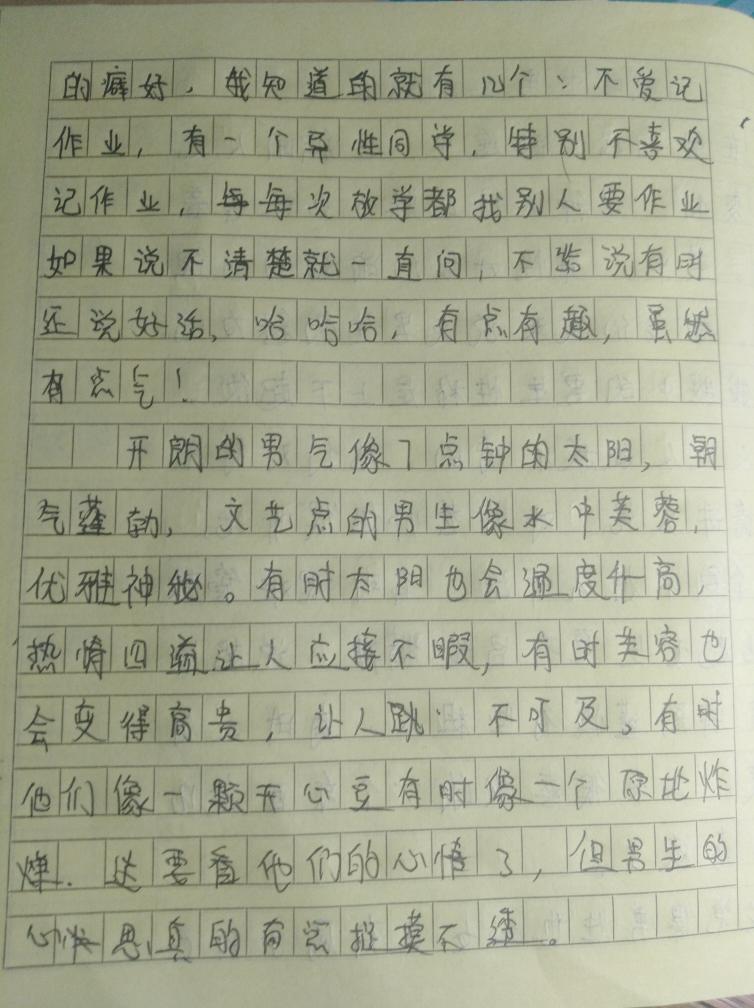 的癖好，我知道的就有几个：不爱记
作业，有一个异性同学，特别不喜欢
记作业，每每次放学都找别人要作业
如果说不清楚就一直问，不紧说有时
还说好话，哈哈哈，有点有趣，虽然
有点气！
开朗的男气像7点钟的太阳，朝
气蓬勃，文艺点的男生像水中芙蓉，
优雅神秘。有时太阳也会温度升高，
热情四溢让人应接不暇，有时芙容也
会变得高贵，让人 不可及。有时
他们像一颗开心豆有时像一个原地炸
爆．这要看他们的心情了，但男生的
心思真的有点捉摸不透。